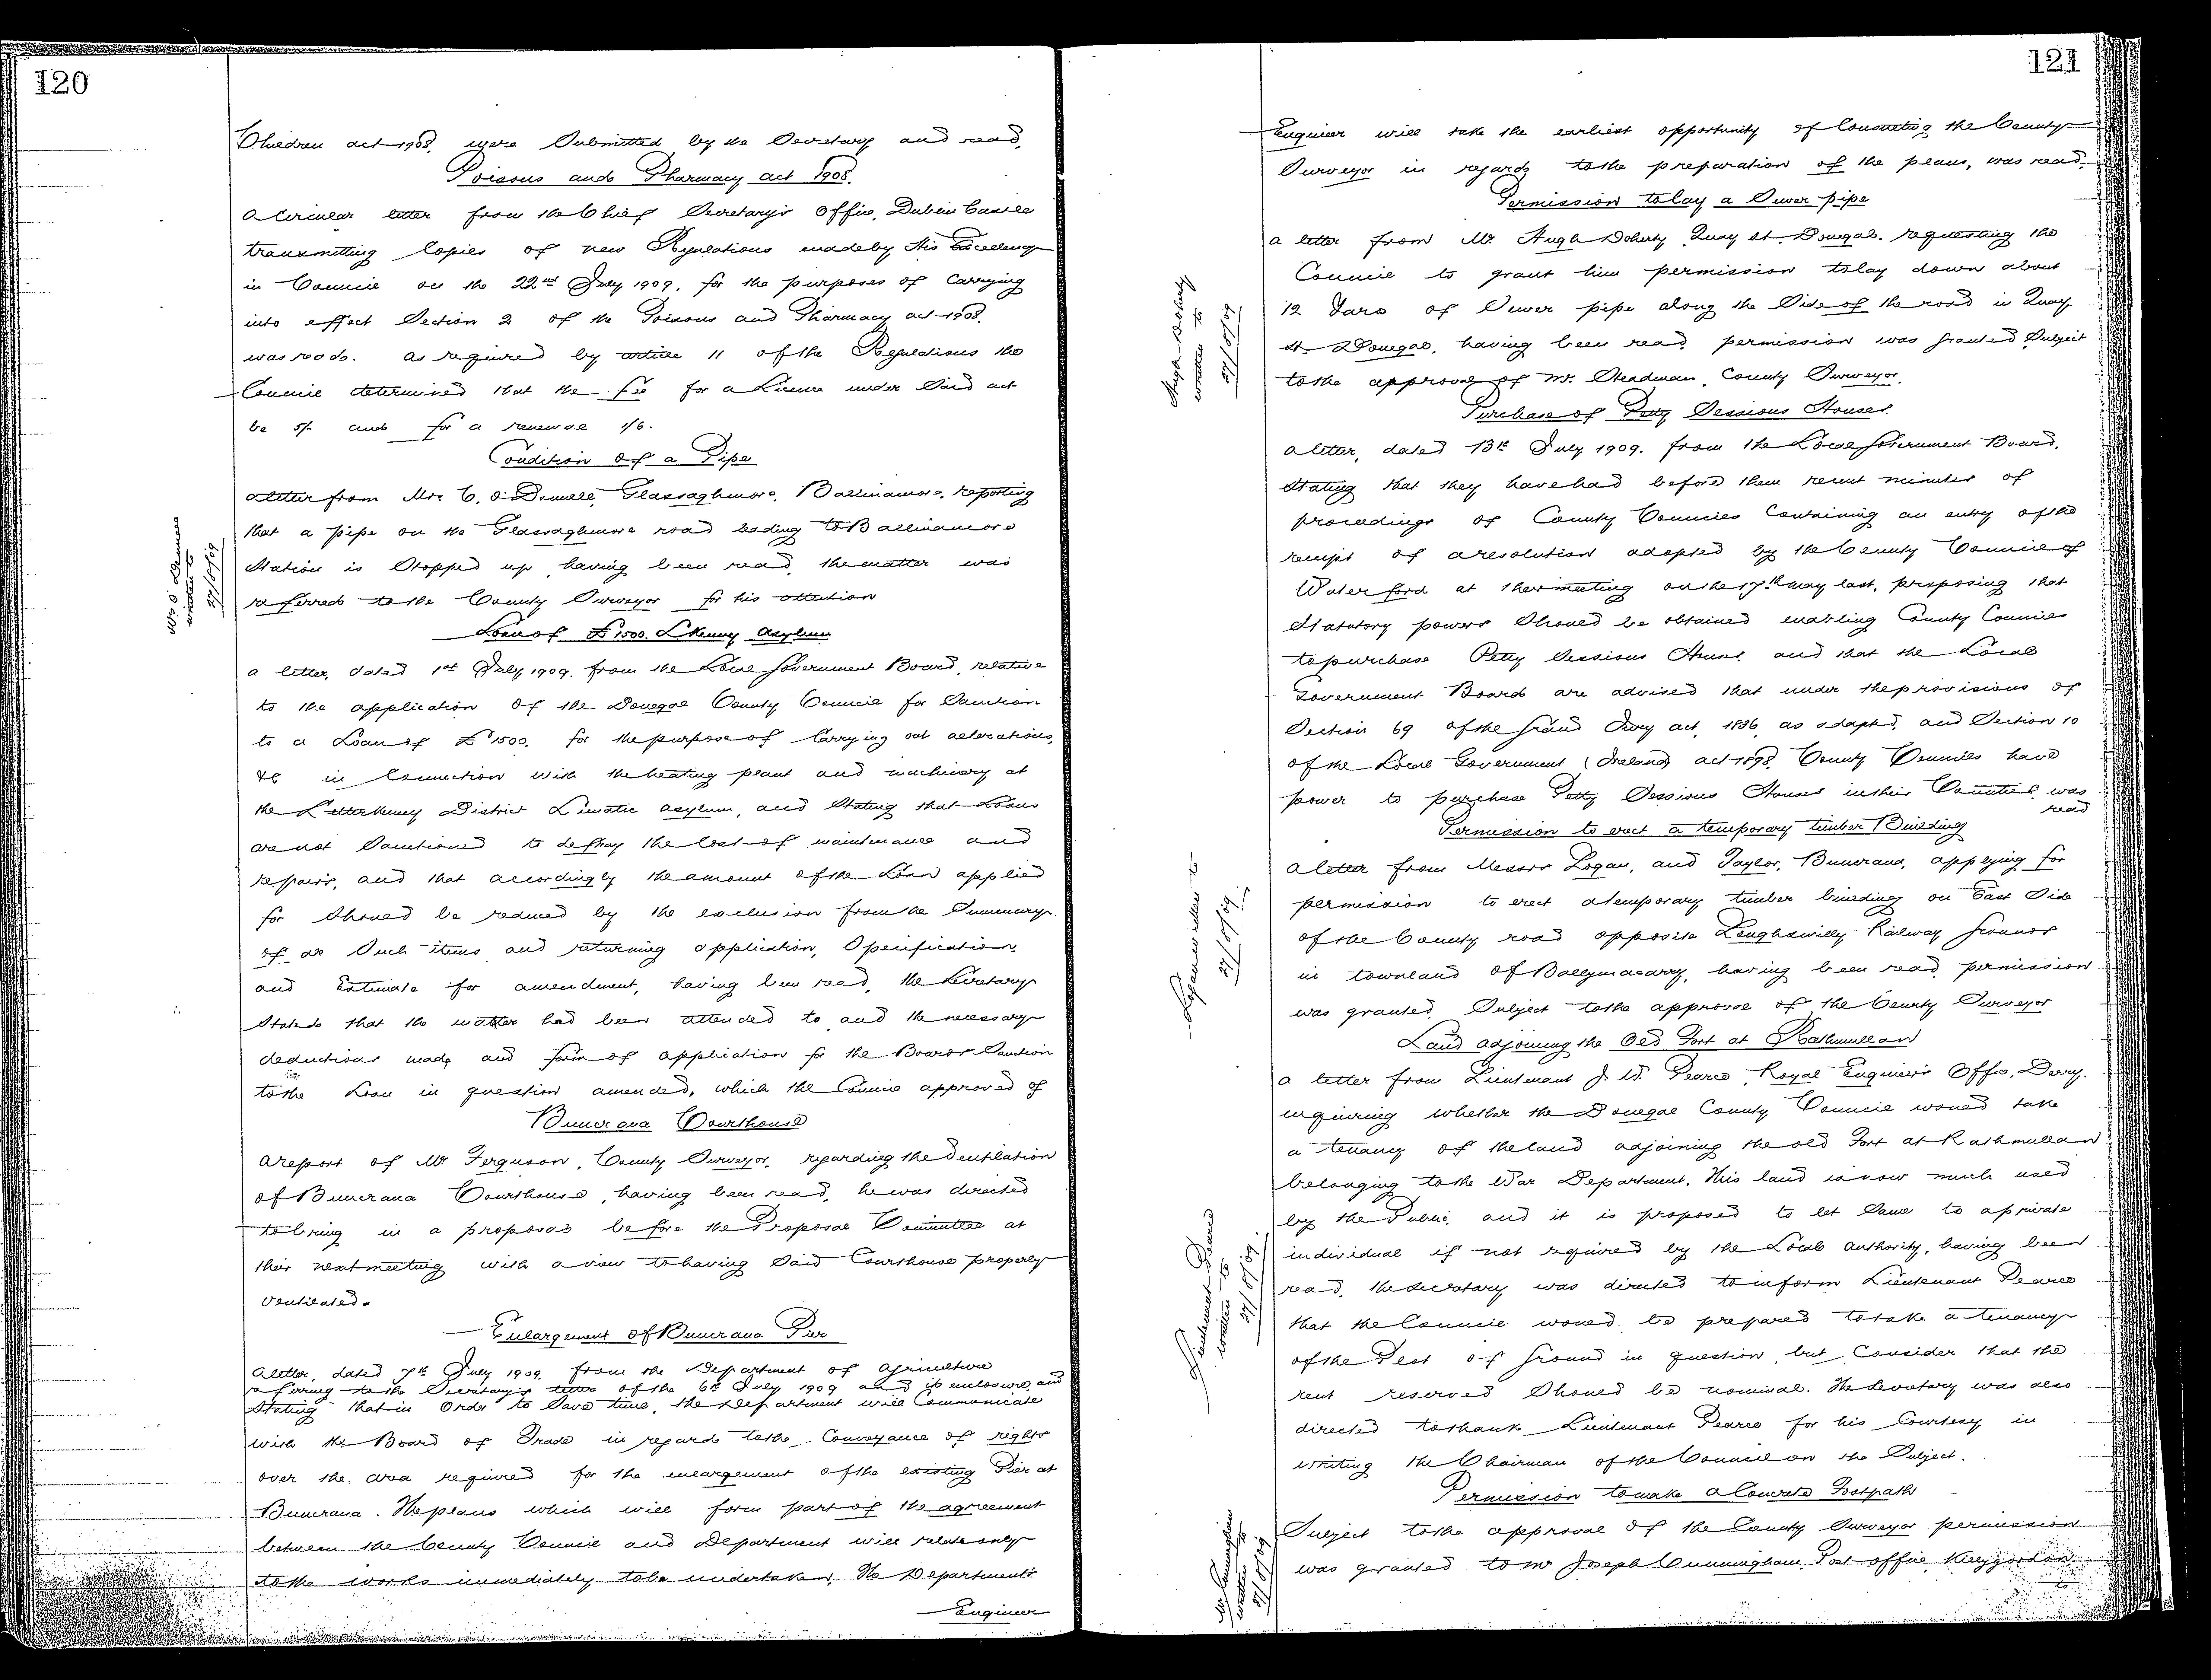 120
Children act 1908, were Submitted by the Secretary and read.
Poisons and Pharmacy act 1908.
A Circular letter from the Chief Secretary's Office, Dublin Castle
transmitting Copies of new Regulations made by His Excellency
in Council on the 22nd July 1909, for the purposes of Carrying
into effect Section 2 of the Poisons and Pharmacy act 1908.
was read. As required by article 11 of the Regulations the
Council determined that the fee for a Licence under Said act
be 5/- and for a renewal 1/6.
Condition of a Pipe
A letter from Mr. C. O'Donnell, Glassaghmore, Ballinamore, reporting
that a pipe on the Glassaghmore road leading to Ballinamore
Station is Stopped up, having been read, the matter was
referred to the County Surveyor for his attention
Mr. O'Donnell
written to
27/8/09
Loan of £1500. L'Kenny Asylum
A letter, dated 1st July 1909. from the Local Government Board, relative
to the application of the Donegal County Council for Sanction
to a Loan of £1500. for the purpose of Carrying out alterations,
&c in Connection with the heating plant and machinery at
the Letterkenny District Lunatic Asylum, and Stating that Loans
are not Sanctioned to defray the Cost of maintenance and
repairs, and that accordingly the amount of the Loan applied
for Should be reduced by the exclusion from the Summary
of all Such items and returning application, Specification,
and Estimate for amendment, having been read, the Secretary
Stated that the matter had been attended to and the necessary
deductions made and form of application for the Boards Sanction
to the Loan in question amended, which the Council approved of
Buncrana Courthouse
A report of Mr. Ferguson, County Surveyor, regarding the Ventilation
of Buncrana Courthouse, having been read, he was directed
to bring in a proposal before the Proposal Committee at
their next meeting with a view to having Said Courthouse properly
Ventilated.
Enlargement of Buncrana Pier
A letter, dated 7th July 1909. from the Department of Agriculture
referring to the Secretary's letter of the 6th July 1909 and its enclosure, and
Stating that in Order to Save time, the Department will Communicate
with the Board of Trade in regard to the Conveyance of rights
over the area required for the enlargement of the existing Pier at
Buncrana. The plans which will form part of the agreement
between the County Council and Department will relate only
to the works immediately to be undertaken. The Department's
Engineer
121
Engineer will take the earliest opportunity of Consulting the County
Surveyor in regard to the preparation of the plans, was read.
Permission to lay a Sewer pipe
A letter from Mr. Hugh Doherty, Quay St. Donegal. requesting the
Council to grant him permission to lay down about
12 Yards of Sewer pipe along the Side of the road in Quay
St. Donegal, having been read permission was granted Subject
to the approval of Mr. Steadman, County Surveyor.
Hugh Doherty
written to
27/8/09
Purchase of Petty Sessions Houses.
A letter, dated 13th July 1909. from the Local Government Board.
Stating that they have had before them recent minutes of
proceedings of County Councils Containing an entry of the
receipt of a resolution adopted by the County Council of
Waterford at their meeting on the 17th May last, proposing that
Statutory powers Should be obtained enabling County Councils
to purchase Petty Sessions Houses and that the Local
Government Board are advised that under the provisions of
Section 69 of the Grand Jury act, 1836, as adapted, and Section 10
of the Local Government (Ireland) act 1898. County Councils have
power to purchase Petty Sessions Houses in their Counties, was
read
Permission to erect a temporary timber Building
A letter from Messrs Logan, and Taylor, Buncrana, applying for
permission to erect a temporary timber building on East Side
of the County road opposite Loughswilly Railway Grounds
in townland of Ballymacarry, having been read permission
was granted. Subject to the approval of the County Surveyor
Logan written to
27/8/09.
Land adjoining the Old Fort at Rathmullan
A letter from Lieutenant J. W. Pearce, Royal Engineers Office, Derry.
inquiring whether the Donegal County Council would take
a tenancy of the land adjoining the old Fort at Rathmullan
belonging to the War Department. This land is now much used
by the Public, and it is proposed to let Same to a private
individual if not required by the Local Authority, having been
read, the Secretary was directed to inform Lieutenant Pearce
that the Council would be prepared to take a tenancy
of the Plot of Ground in question, but Consider that the
rent reserved Should be nominal. The Secretary was also
directed to thank Lieutenant Pearce for his Courtesy in
writing the Chairman of the Council on the Subject.
Lieutenant Pearce
written to
27/8/09.
Permission to make a Concrete Footpath
Subject to the approval of the County Surveyor permission
was granted to Mr Joseph Cunningham, Post office, Killygordon
to
Mr. Cunningham
written to
27/8/09